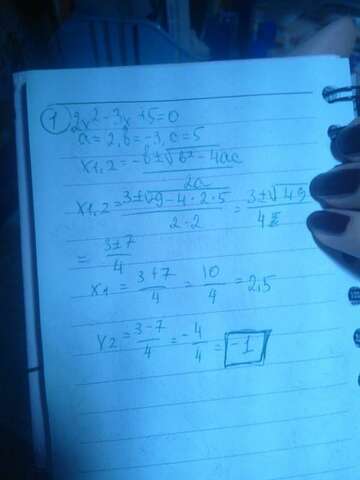 1 2x² - 3x + 5 = 0
a = 2, b = -3, c = 5
x1,2 = -b ± √b² - 4ac / 2a
x1,2 = 3 ± √-9 - 4 · 2 · 5 / 2 · 2 = 3 ± √49 / 4
= 3 ± 7 / 4
x1 = 3 + 7 / 4 = 10 / 4 = 2,5
x2 = 3 - 7 / 4 = -4 / 4 = -1